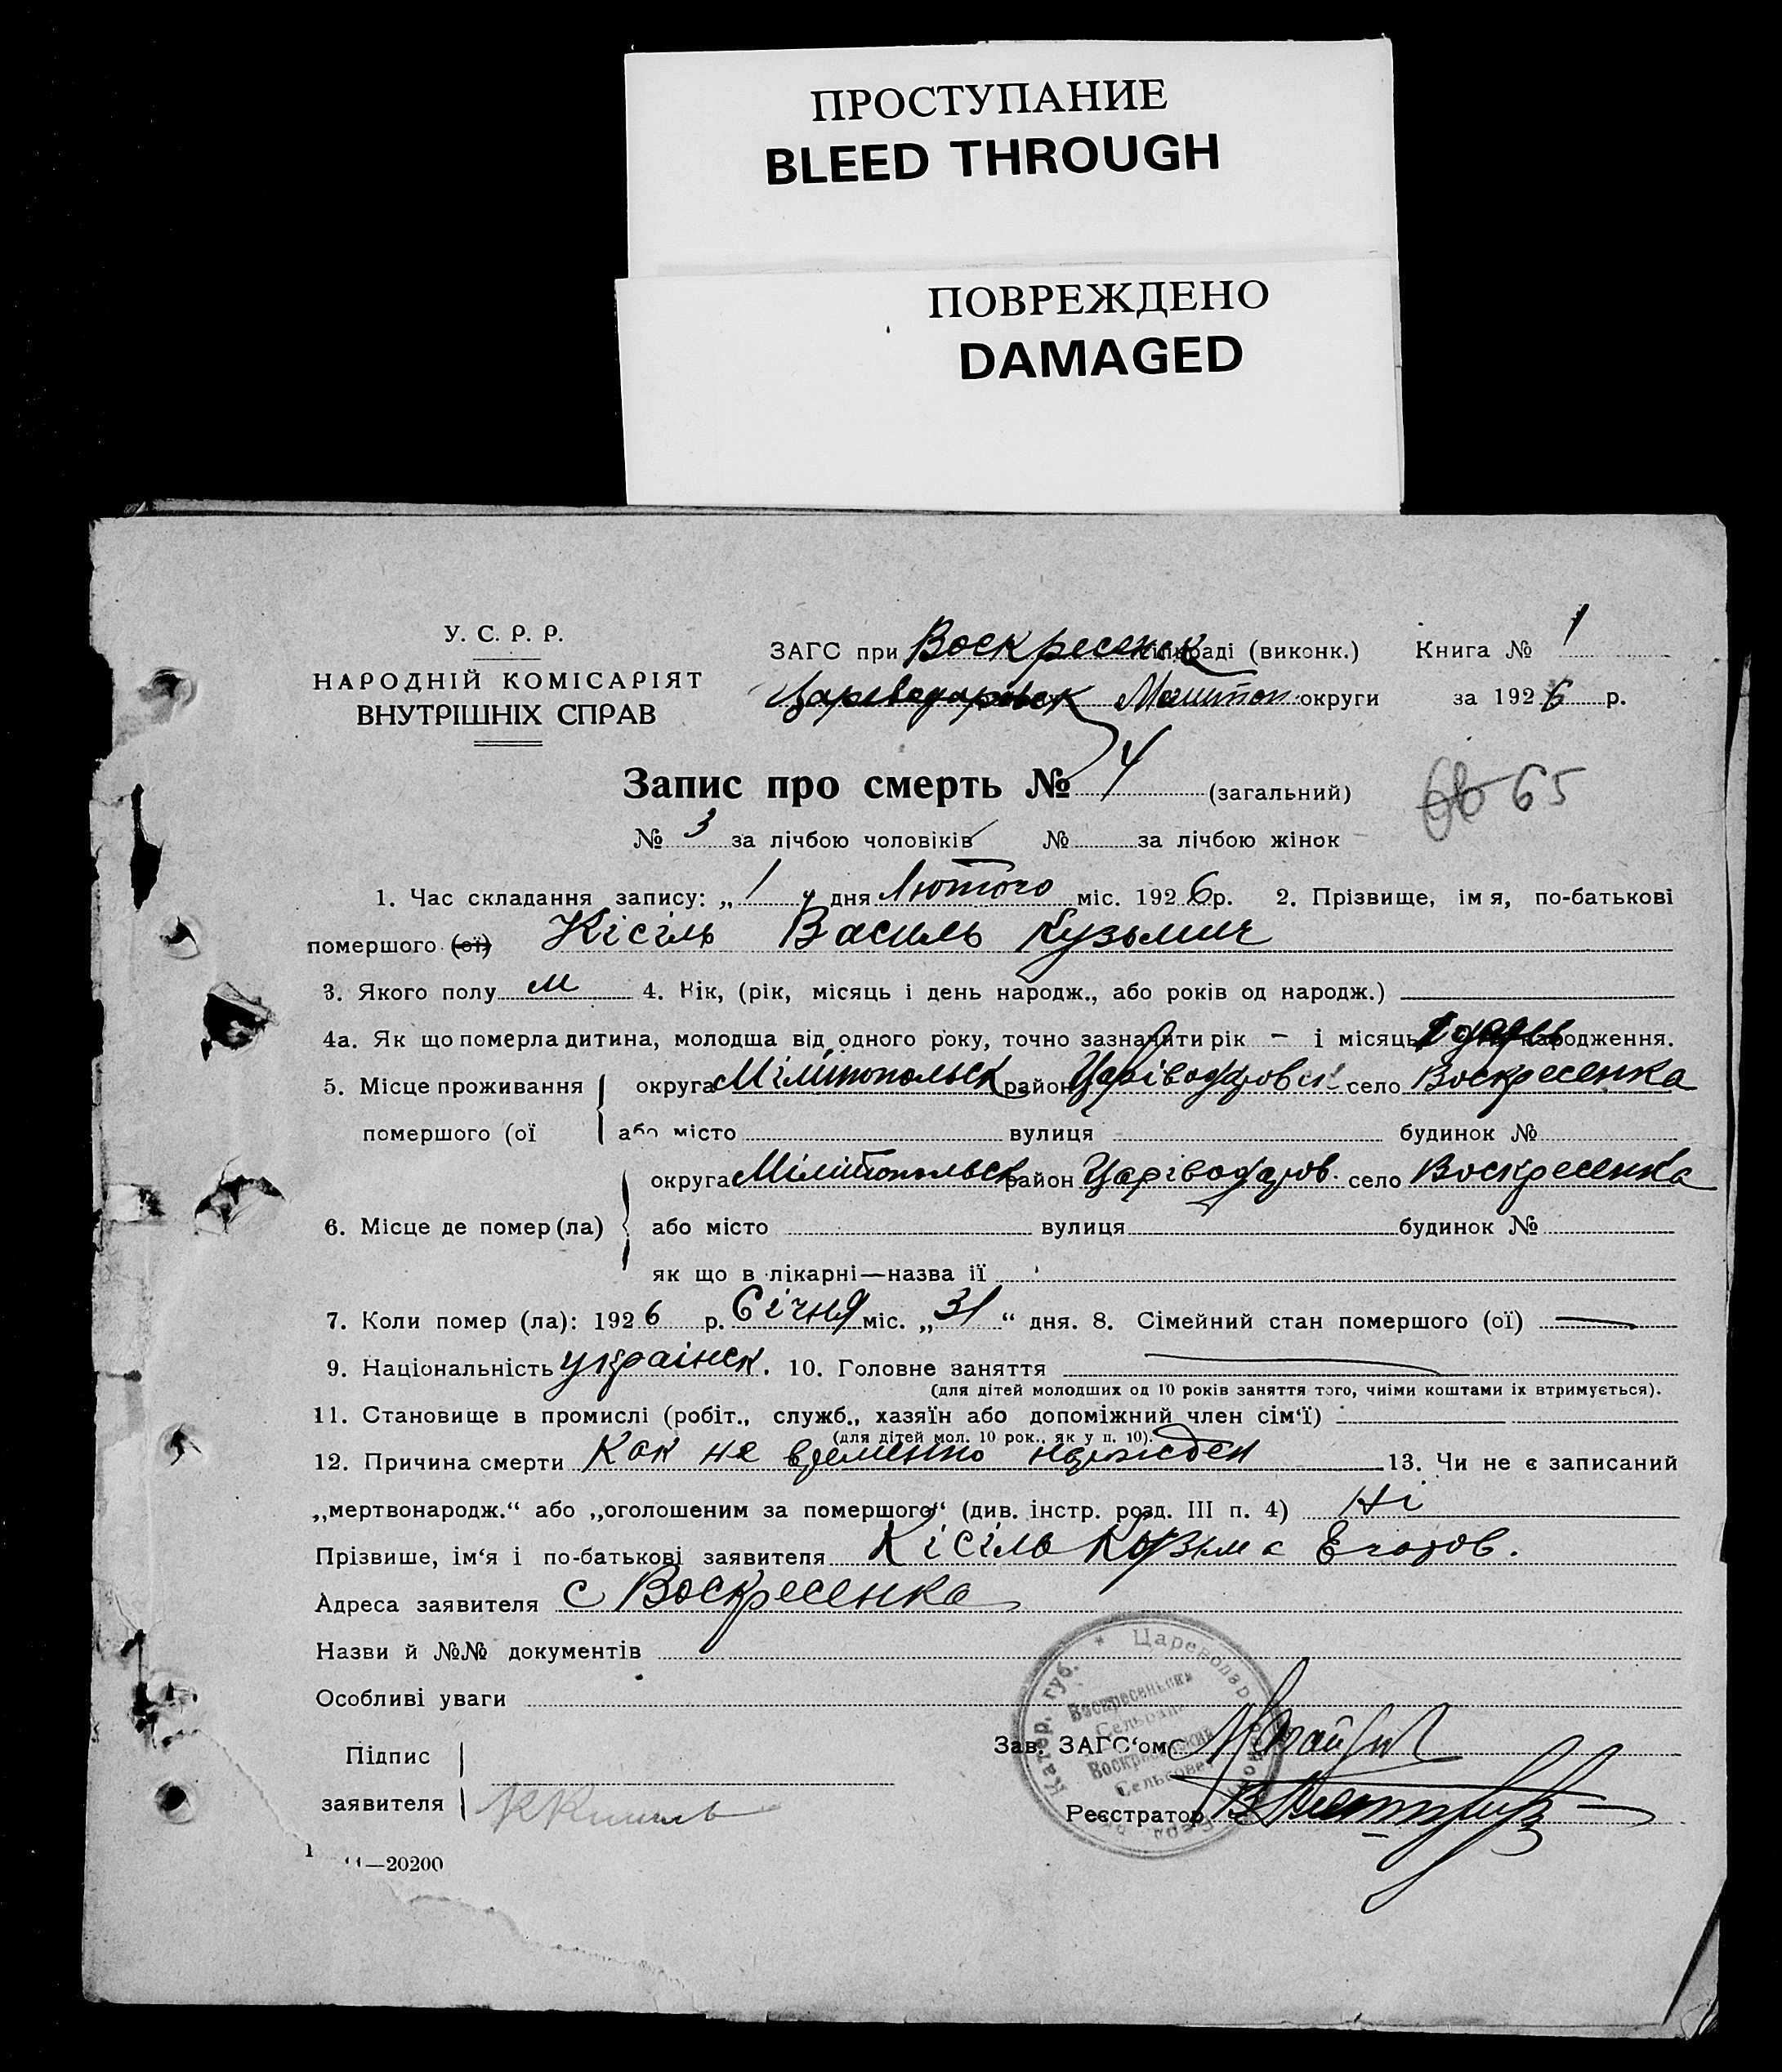 ПРОСТУПАНИЕ
BLEED THROUGH
ПОВРЕЖДЕНО
DAMAGED
У. С. Р. Р.
НАРОДНІЙ КОМІСАРІЯТ
ВНУТРІШНІХ СПРАВ
ЗАГС при Воскресенск сільраді (виконк.) Книга № 1
Цареводаровск Мелитоп округи за 1926 р.
Запис про смерть № 4 (загальний)
66 65
№ 3 за лічбою чоловіків № за лічбою жінок
1. Час складання запису: „ 1 " дня Лютого міс. 1926 р. 2. Прізвище, ім я, по-батькові
помершого (ої) Кісіль Василь Кузьмич
3. Якого полу м 4. Вік, (рік, місяць і день народж., або років од народж.)
4а. Як що померла дитина, молодша від одного року, точно зазначити рік – і місяць народження.
5. Місце проживання округа Мілітопольск район Царіводаровск село Воскресенка
помершого (ої або місто вулиця будинок №
округа Мілітопольск район Царіводаров. село Воскресенка
6. Місце де помер (ла) або місто вулиця будинок №
як що в лікарні—назва її
7. Коли помер (ла): 1926 р. Січня міс. „ 31 “ дня. 8. Сімейний стан помершого (ої) —
9. Національність українск. 10. Головне заняття —
(для дітей молодших од 10 років заняття того, чиїми коштами їх втримується).
11. Становище в промислі (робіт., служб., хазяїн або допоміжний член сім‘ї)
(для дітей мол. 10 рок., як у п. 10).
12. Причина смерти Как не временно 13. Чи не є записаний
„мертвонародж.“ або „оголошеним за помершого“ (див. інстр. розд. III п. 4) Ні
Прізвише, ім‘я і по-батькові заявителя Кісіль Кузьма Егоров.
Адреса заявителя с Воскресенка
Назви й №№ документів
Особливі уваги
Катер. губ. * Цареводар
Воскресеньска
Сельрада
Воскресенский
Сельсовет
Підпис
заявителя
Зав. ЗАГС‘ом
Реєстратор
—20200